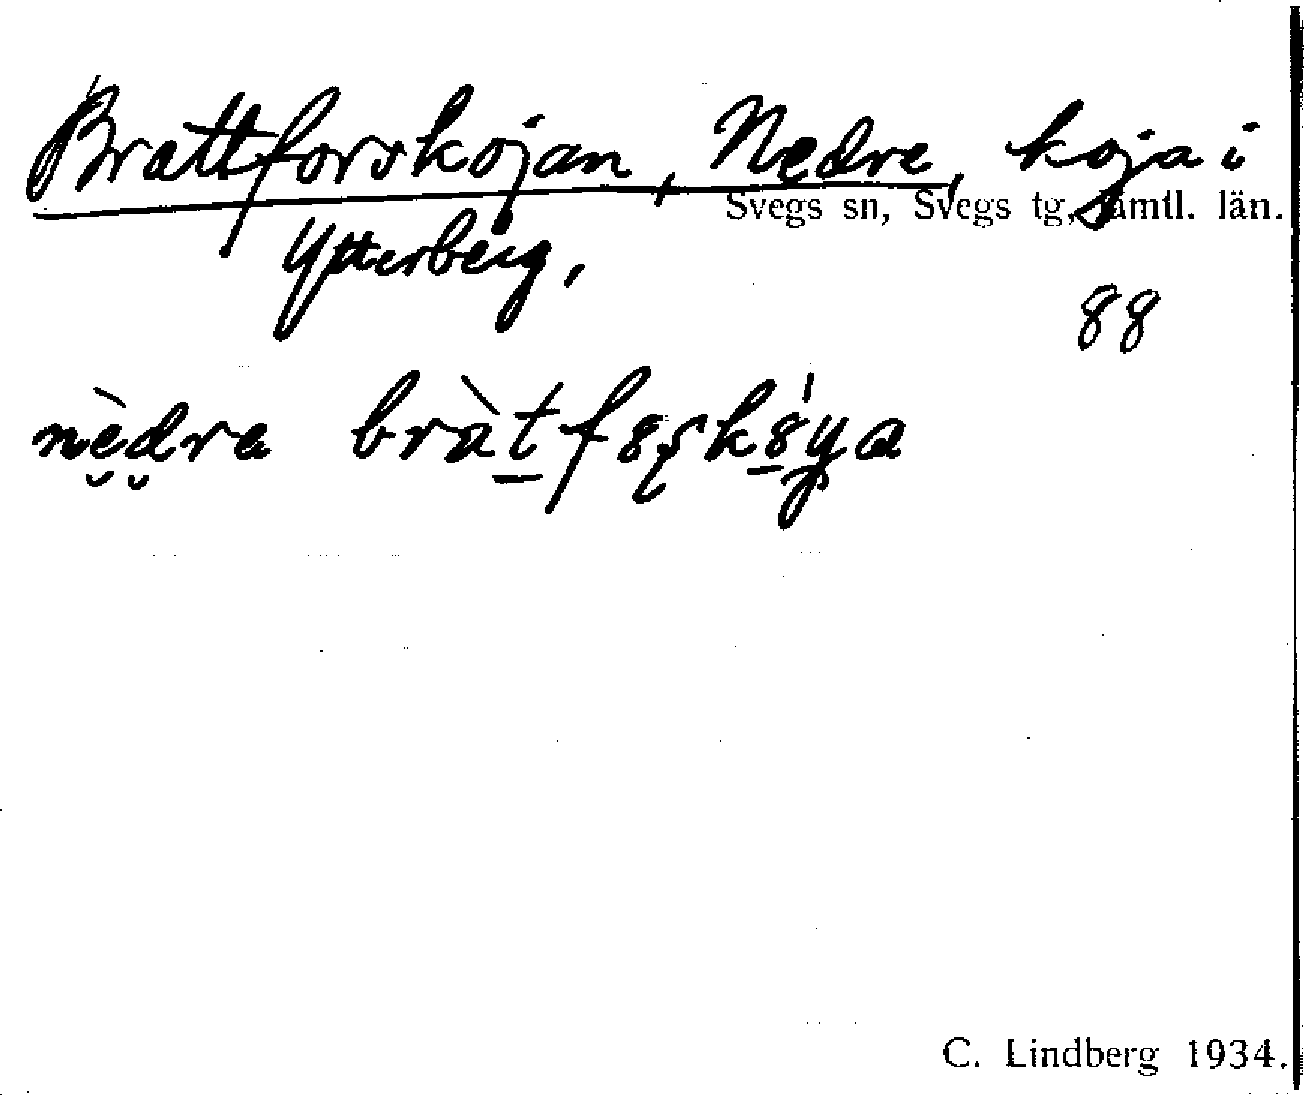 Brattforskojan, Nedre, koja i
Svegs sn, Svegs tg, Jämtl. län.
Ytterberg,
88
nèdre bràtfo
C. Lindberg 1934.